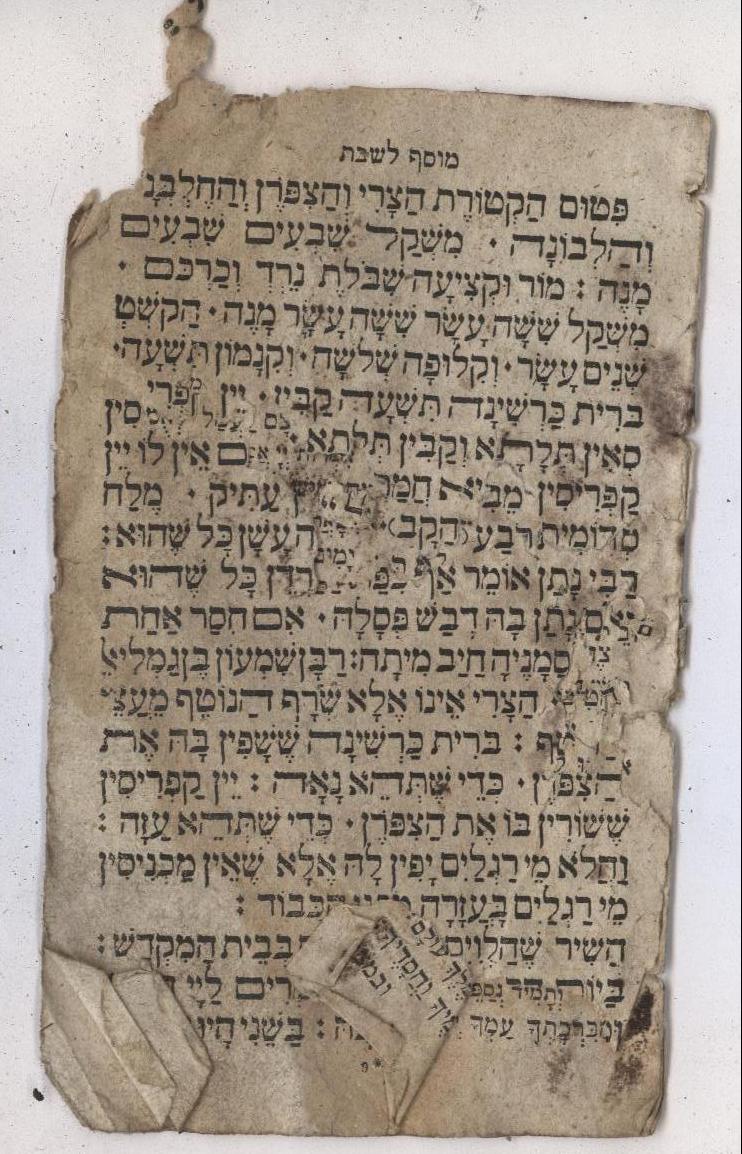 מוסף לשבת
פִּטוּם הַקְטוֹרֶת הַצֳּרִי וְהַצִפּוֹרֶן וְהַחֶלְבְּנָ
וְהַלְבוֹנָה · מִשְׁקַל שִׁבְעִים שִׁבְעִים
מָנֶה : מוֹר וּקְצִיעָה שִׁבּוֹלֶת נֵרְדְּ וְכַרְכֹּם ·
מִשְׁקַל שִׁשָּׁה עָשָׂר שִׁשָּׁה עָשָׂר מָנֶה · הַקּשְׁטְ
שְׁנֵים עָשָׂר · וְקִלוּפָה שְׁלשָׁה · וְקִנָמוֹן תִּשְׁעָה ·
בּרִית כַּרְשִׁינָה תִּשְׁעָה קַבִּין · יֵין קַפְרִי סִין
סְאִין תְּלָתָא וְקַבִּין תְּלָתָא · אִם אֵין לוֹ יֵין
קַפְרִיסִין מֵבִיא חֲמַר עַתִּיק · מֶלַח
סְדוֹמִית רֹבַע הַקָּב הֶעָשָׁן כָּל שֶׁהוּא :
רַבִּי נָתָן אוֹמֵר אַף כִּפַּ הַיַרְדֵן כָּל שֶׁהוּא
אִם נָתַן בָּהּ דְּבַשׁ פְּסָלָהּ · אִם חִסַּר אַחַת
סַמָנֶיהָ חַיָב מִיתָה : רַבָּן שִׁמְעוֹן בֶּן גַמְלִיאֵ
הַצֳּרִי אֵינוֹ אֶלָּא שְׂרָף הַנּוֹטֵף מֵעֲצֵי
בּרִית כַּרְשִׁינָה שֶׁשָּׁפִין בָּהּ אֶת
הַצִפּוֹרֶן · כְּדֵי שֶׁתְּהֵא נָאָה : יֵין קַפְרִיסִין
שֶׁשׁוֹרִין בּוֹ אֶת הַצִפּוֹרֶן · כְּדֵי שֶׁתְּהֵא עַזָה :
וַהֲלֹא מֵי רַגְלַיִם יָפִין לָהּ אֶלָּא שֶׁאֵין מַכְנִיסִין
מֵי רַגְלַיִם בָּעֲזָרָה הַכָּבוֹד :
הַשִׁיר שֶׁהַלְוִיִם בְּבֵית הַמִקְדָשׁ :
בַּיוֹם וְתָמִיד נְסַפֵּ לַיְיָ
וּמִבִּרְכָתֶךָ עַמְּךָ : בַּשֵׁנִי הָיוּ